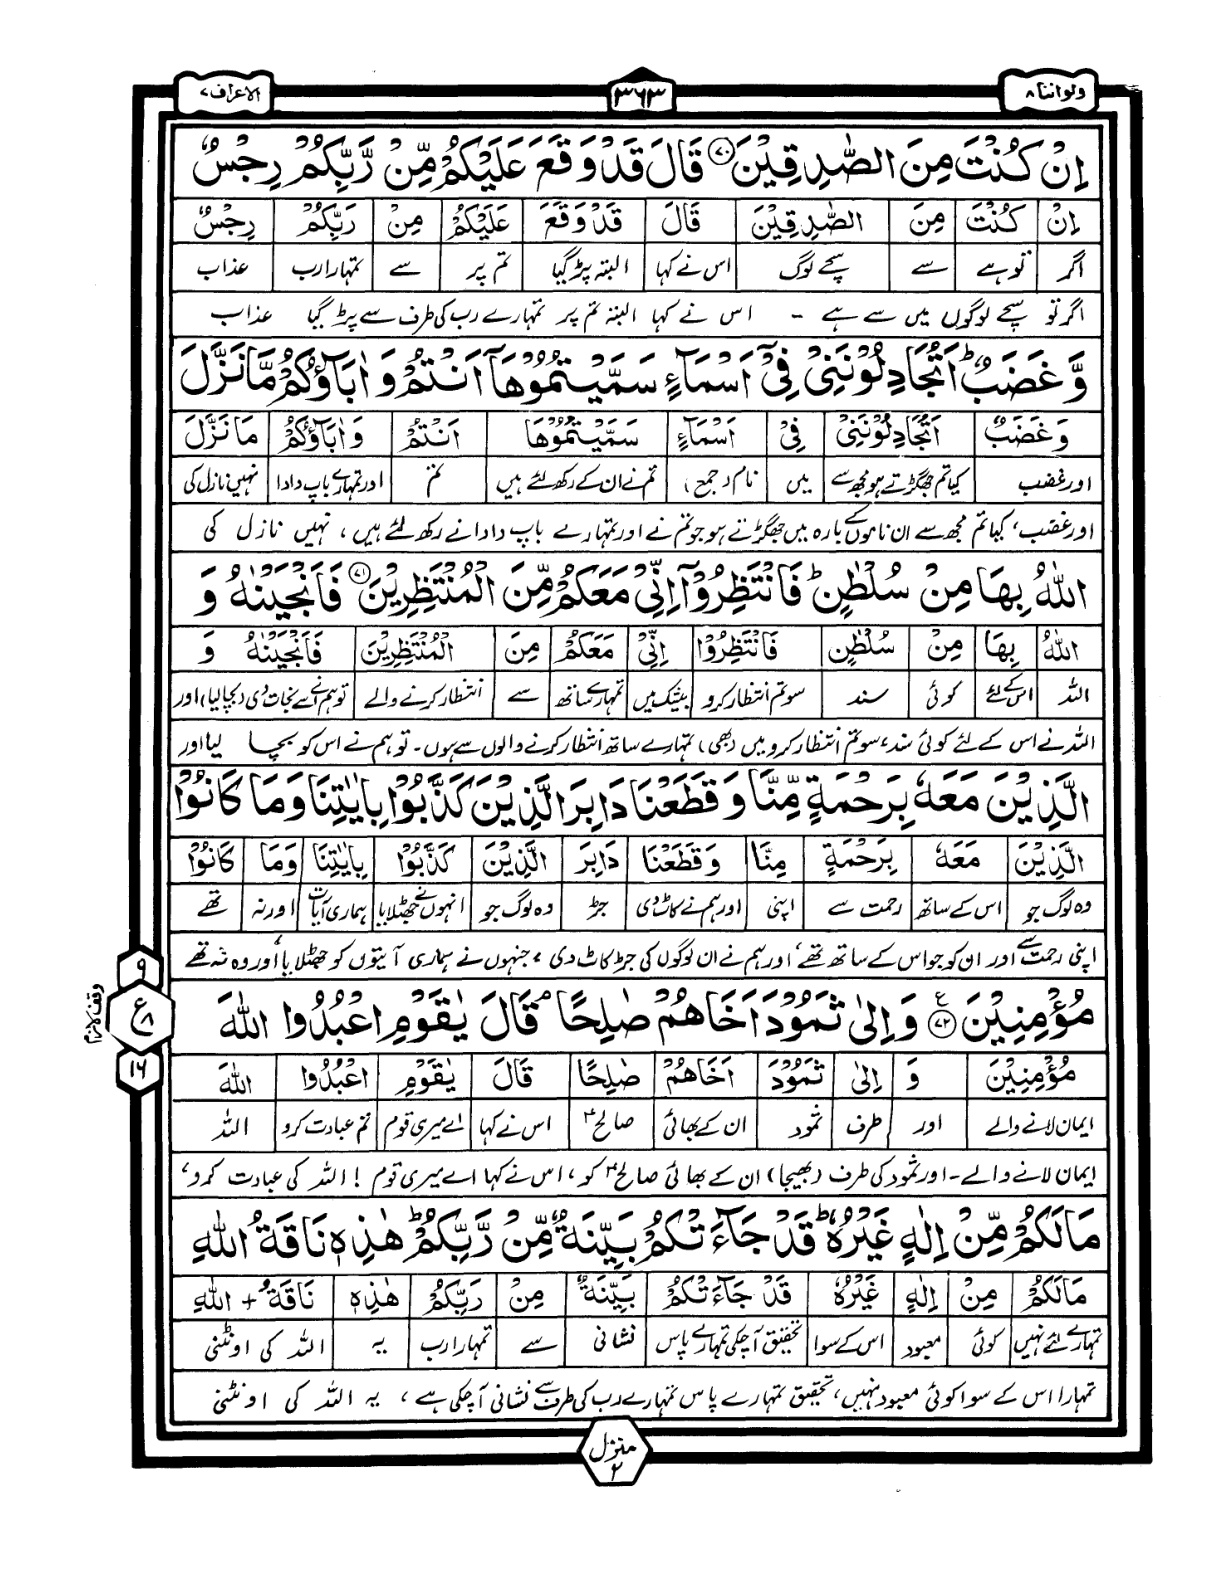 ولواننا ۸
۳۶۳
الاعراف ۷
اِنْ كُنْتَ مِنَ الصّٰدِقِيْنَ ۝۷۰ قَالَ قَدْ وَقَعَ عَلَيْكُمْ مِّنْ رَّبِّكُمْ رِجْسٌ
اِنْ كُنْتَ مِنَ الصّٰدِقِيْنَ قَالَ قَدْ وَقَعَ عَلَيْكُمْ مِنْ رَبِّكُمْ رِجْسٌ
اگر تو ہے سے سچے لوگ اس نے کہا البتہ پڑ گیا تم پر سے تمہارا رب عذاب
اگر تو سچے لوگوں میں سے ہے - اس نے کہا البتہ تم پر تمہارے رب کی طرف سے پڑ گیا عذاب
وَّ غَضَبٌ ؕ اَتُجَادِلُوْنَنِيْ فِيْۤ اَسْمَآءٍ سَمَّيْتُمُوْهَاۤ اَنْتُمْ وَ اٰبَآؤُكُمْ مَّا نَزَّلَ
وَ غَضَبٌ اَتُجَادِلُوْنَنِيْ فِيْ اَسْمَآءٍ سَمَّيْتُمُوْهَا اَنْتُمْ وَ اٰبَآؤُكُمْ مَا نَزَّلَ
اور غضب کیا تم جھگڑتے ہو مجھ سے میں نام (جمع) تم نے ان کے رکھ لئے ہیں تم اور تمہارے باپ دادا نہیں نازل کی
اور غضب، کیا تم مجھ سے ان ناموں کے بارہ میں جھگڑتے ہو جو تم نے اور تمہارے باپ دادا نے رکھ لئے ہیں، نہیں نازل کی
اللّٰهُ بِهَا مِنْ سُلْطٰنٍ ؕ فَانْتَظِرُوْۤا اِنِّيْ مَعَكُمْ مِّنَ الْمُنْتَظِرِيْنَ ۝۷۱ فَاَنْجَيْنٰهُ وَ
اللّٰهُ بِهَا مِنْ سُلْطٰنٍ فَانْتَظِرُوْا اِنِّيْ مَعَكُمْ مِنَ الْمُنْتَظِرِيْنَ فَاَنْجَيْنٰهُ وَ
اللہ اس کے لئے کوئی سند سو تم انتظار کرو بیشک میں تمہارے ساتھ سے انتظار کرنے والے تو ہم نے اسے نجات دی (بچا لیا) اور
اللہ نے اس کے لئے کوئی سند، سو تم انتظار کرو میں (بھی) تمہارے ساتھ انتظار کرنے والوں سے ہوں۔ تو ہم نے اس کو بچا لیا اور
الَّذِيْنَ مَعَهٗ بِرَحْمَةٍ مِّنَّا وَ قَطَعْنَا دَابِرَ الَّذِيْنَ كَذَّبُوْا بِاٰيٰتِنَا وَ مَا كَانُوْا
الَّذِيْنَ مَعَهٗ بِرَحْمَةٍ مِنَّا وَ قَطَعْنَا دَابِرَ الَّذِيْنَ كَذَّبُوْا بِاٰيٰتِنَا وَمَا كَانُوْا
وہ لوگ جو اس کے ساتھ رحمت سے اپنی اور ہم نے کاٹ دی جڑ وہ لوگ جو انہوں نے جھٹلایا ہماری آیات اور نہ تھے
اپنی رحمت سے اور ان کو جو اس کے ساتھ تھے، اور ہم نے ان لوگوں کی جڑ کاٹ دی، جنہوں نے ہماری آیتوں کو جھٹلایا، اور وہ نہ تھے
۹
ع
۸
۱۶
وقف لازم
مُؤْمِنِيْنَ ۝۷۲ ع وَ اِلٰى ثَمُوْدَ اَخَاهُمْ صٰلِحًا ۘ قَالَ يٰقَوْمِ اعْبُدُوا اللّٰهَ
مُؤْمِنِيْنَ وَ اِلٰى ثَمُوْدَ اَخَاهُمْ صٰلِحًا قَالَ يٰقَوْمِ اعْبُدُوا اللّٰهَ
ایمان لانے والے اور طرف ثمود ان کے بھائی صالحؑ اس نے کہا اے میری قوم تم عبادت کرو اللہ
ایمان لانے والے۔ اور ثمود کی طرف (بھیجا) ان کے بھائی صالحؑ کو، اس نے کہا اے میری قوم! اللہ کی عبادت کرو،
مَا لَكُمْ مِّنْ اِلٰهٍ غَيْرُهٗ ؕ قَدْ جَآءَتْكُمْ بَيِّنَةٌ مِّنْ رَّبِّكُمْ ؕ هٰذِهٖ نَاقَةُ اللّٰهِ
مَا لَكُمْ مِنْ اِلٰهٍ غَيْرُهٗ قَدْ جَآءَتْكُمْ بَيِّنَةٌ مِنْ رَبِّكُمْ هٰذِهٖ نَاقَةُ + اللّٰهِ
تمہارے لئے نہیں کوئی معبود اس کے سوا تحقیق آچکی تمہارے پاس نشانی سے تمہارا رب یہ اللہ کی اونٹنی
تمہارا اس کے سوا کوئی معبود نہیں، تحقیق تمہارے پاس تمہارے رب کی طرف سے نشانی آچکی ہے، یہ اللہ کی اونٹنی
منزل
۲